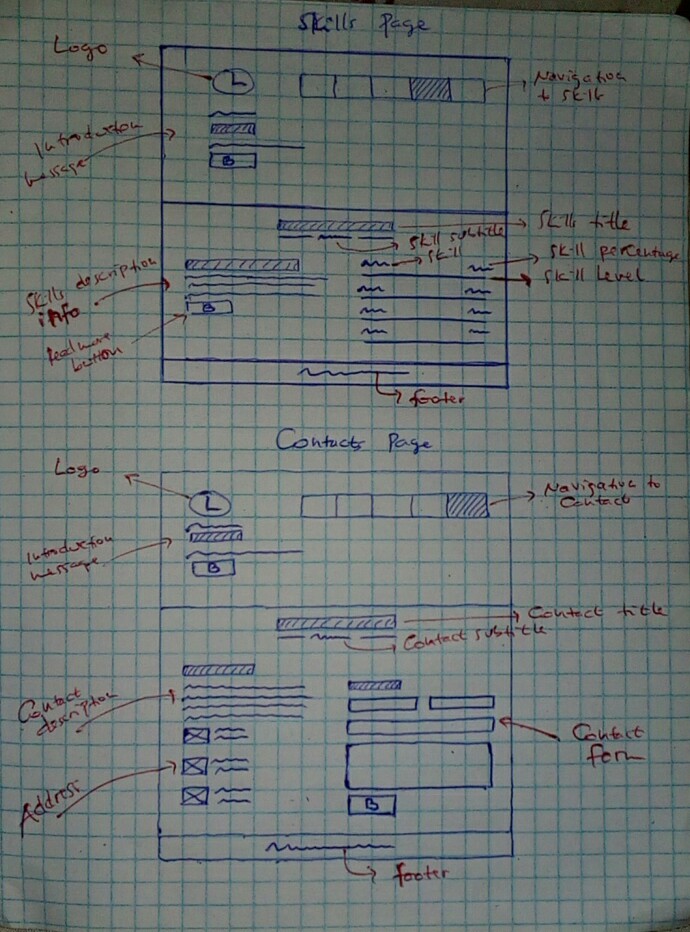 Skills Page
Logo
L
Navigation
to skills
Introduction
message
B
Skills title
Skill subtitle
Skill
Skill percentage
Skill level
Skills description
info
B
Read more
button
footer
Contacts Page
Logo
L
Navigation to
Contact
Introduction
message
B
Contact title
Contact subtitle
Contact
description
Address
Contact
form
B
footer